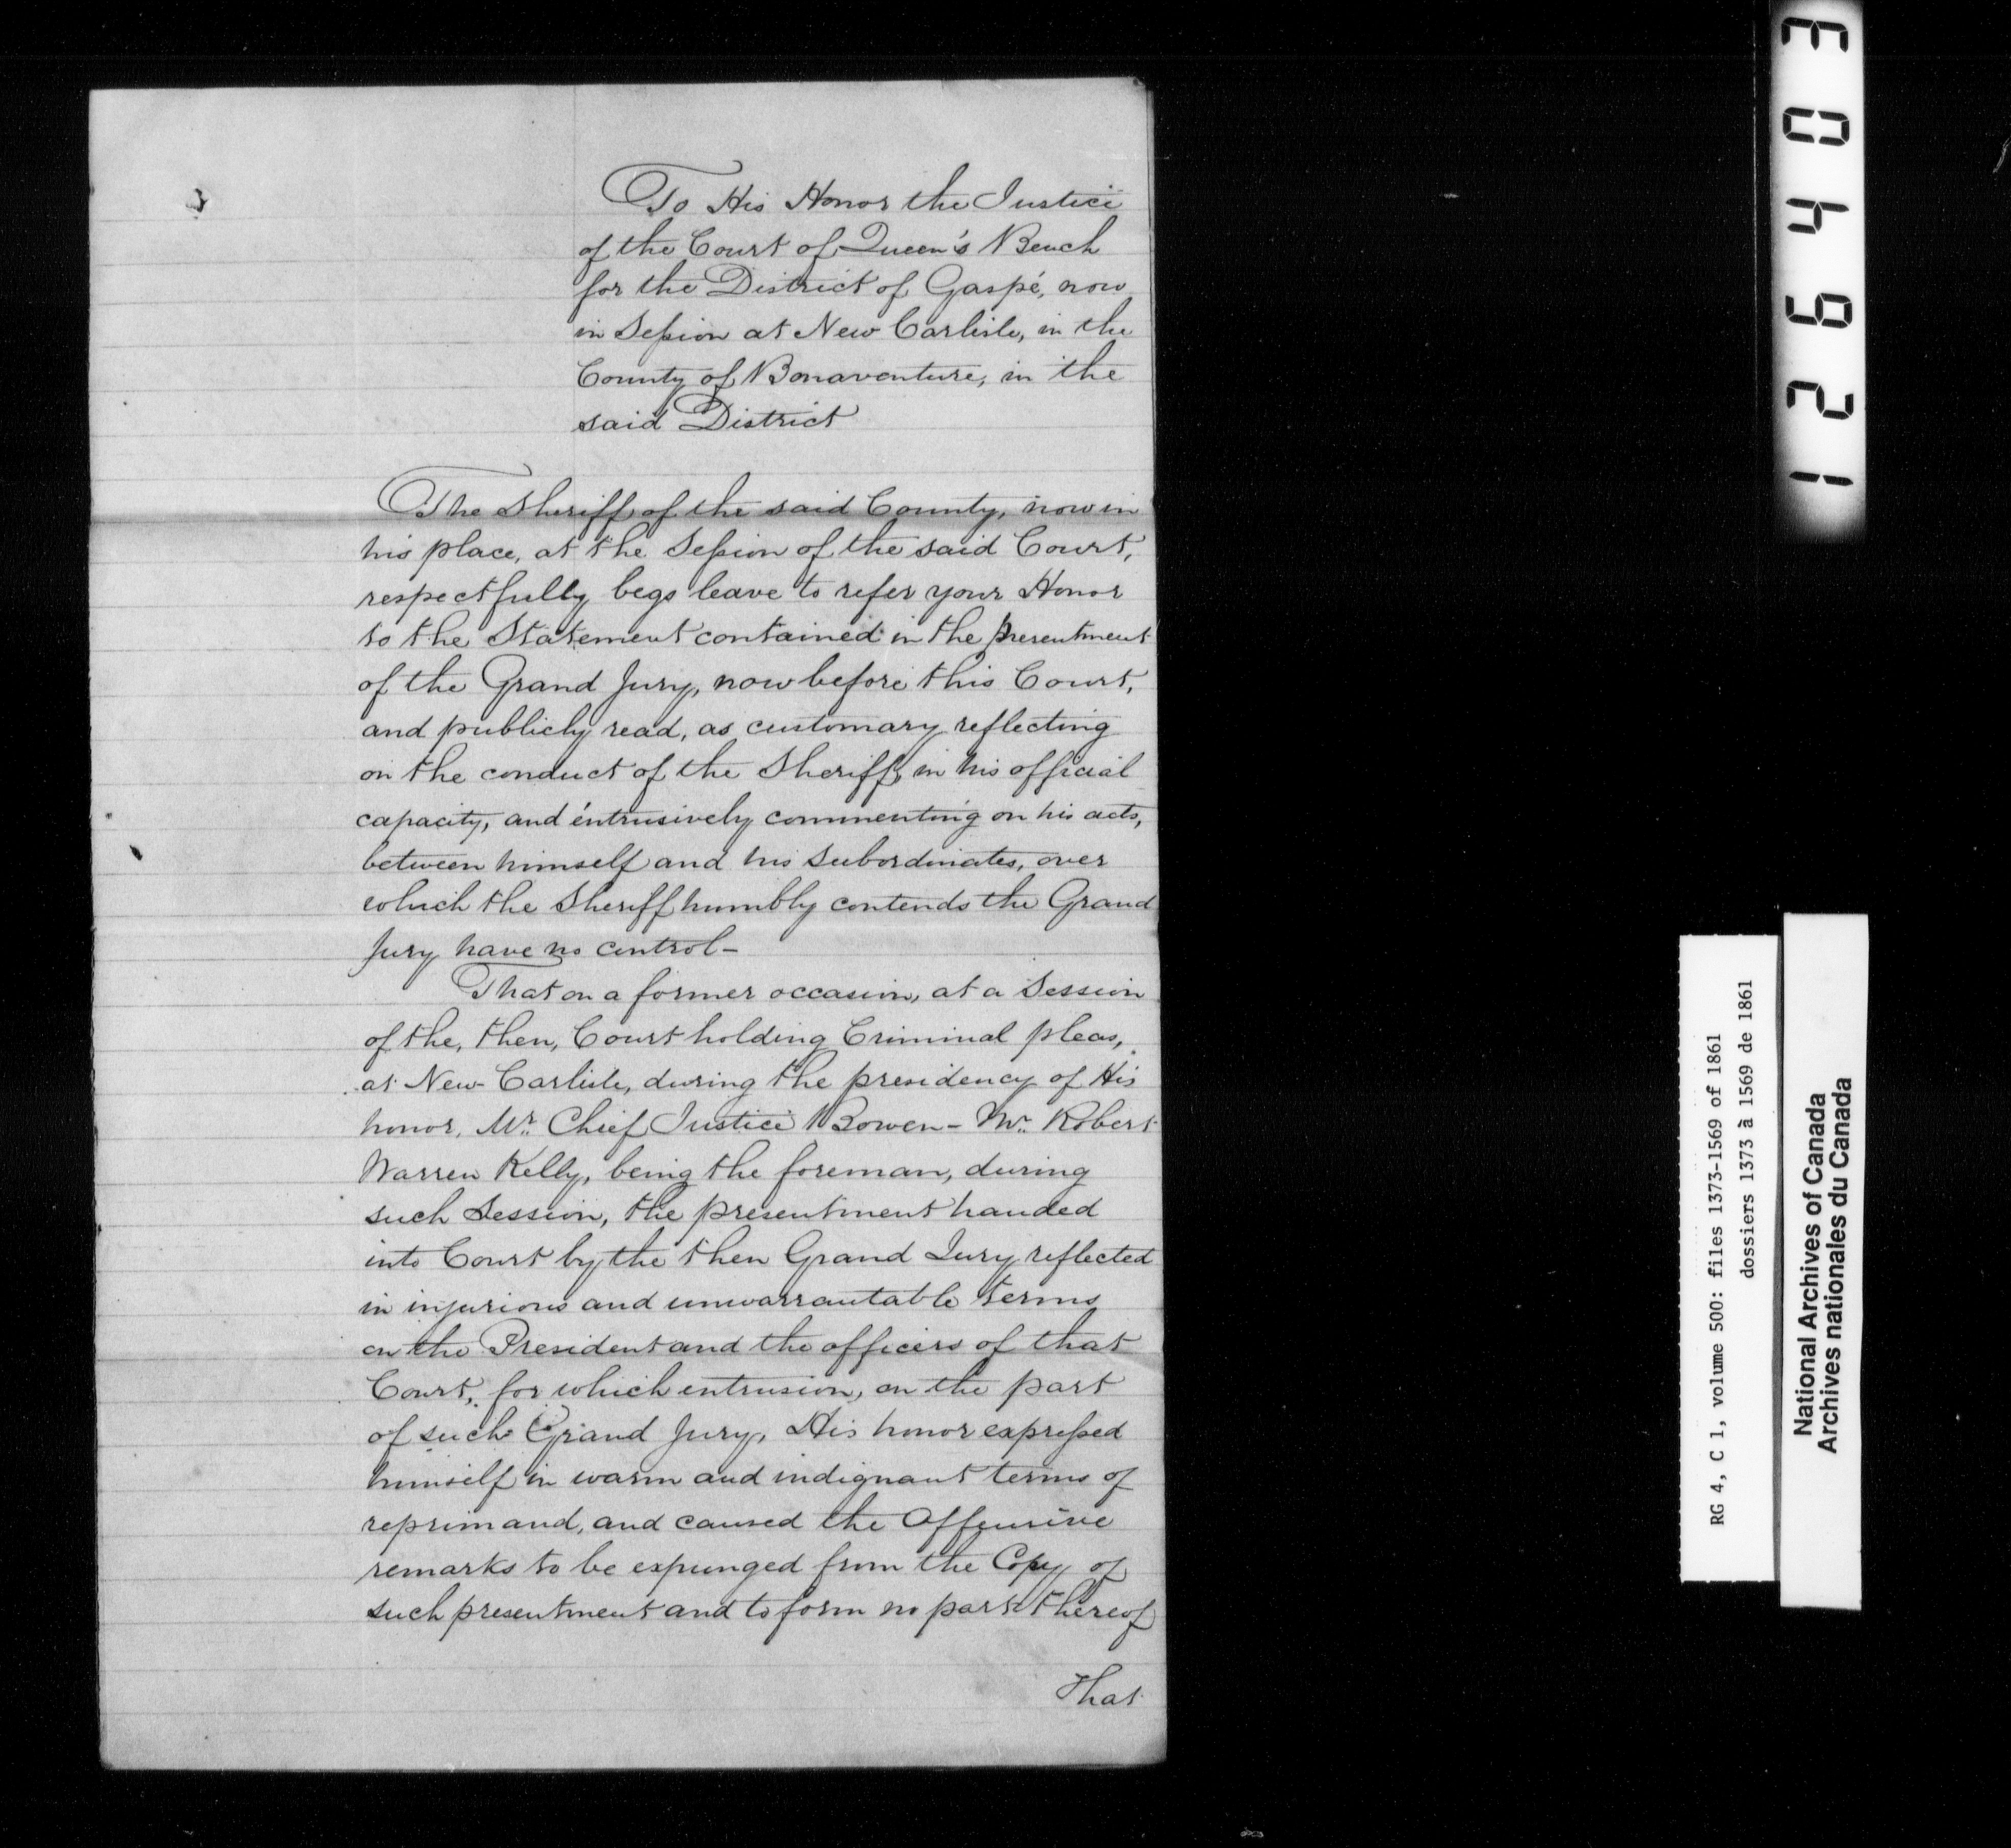 To His Honor the Justice
of the Court of Queen's Bench
for the District of Gaspé, now
in Session at New Carlisle, in the
County of Bonaventure, in the
said District
The Sheriff of the said County, now in
his place, at the Session of the said Court,
respectfully begs leave to refer your Honor
to the Statement contained in the presentment
of the Grand Jury, now before this Court,
and publicly read, as customary reflecting
on the conduct of the Sheriff, in his official
capacity, and intrusively commenting on his acts,
between himself and his subordinates, over
which the Sheriff humbly contends the Grand
Jury have no control-
That on a former occasion, at a Session
of the, then, Court holding Criminal pleas,
at New-Carlisle, during the presidency of His
honor, Mr. Chief Justice Bowen- Mr. Robert
Warren Kelly, being the foreman, during
such Session, the presentment handed
into Court by the then Grand Jury reflected
in injurious and unwarrantable terms
on the President and the officers of that
Court, for which intrusion, on the part
of such Grand Jury, His honor expressed
himself in warm and indignant terms of
reprimand, and caused the Offensive
remarks to be expunged from the Copy of
such presentment and to form no part thereof
That
126403
RG 4, C 1, volume 500: files 1373-1569 of 1861
dossiers 1373 à 1569 de 1861
National Archives of Canada
Archives nationales du Canada